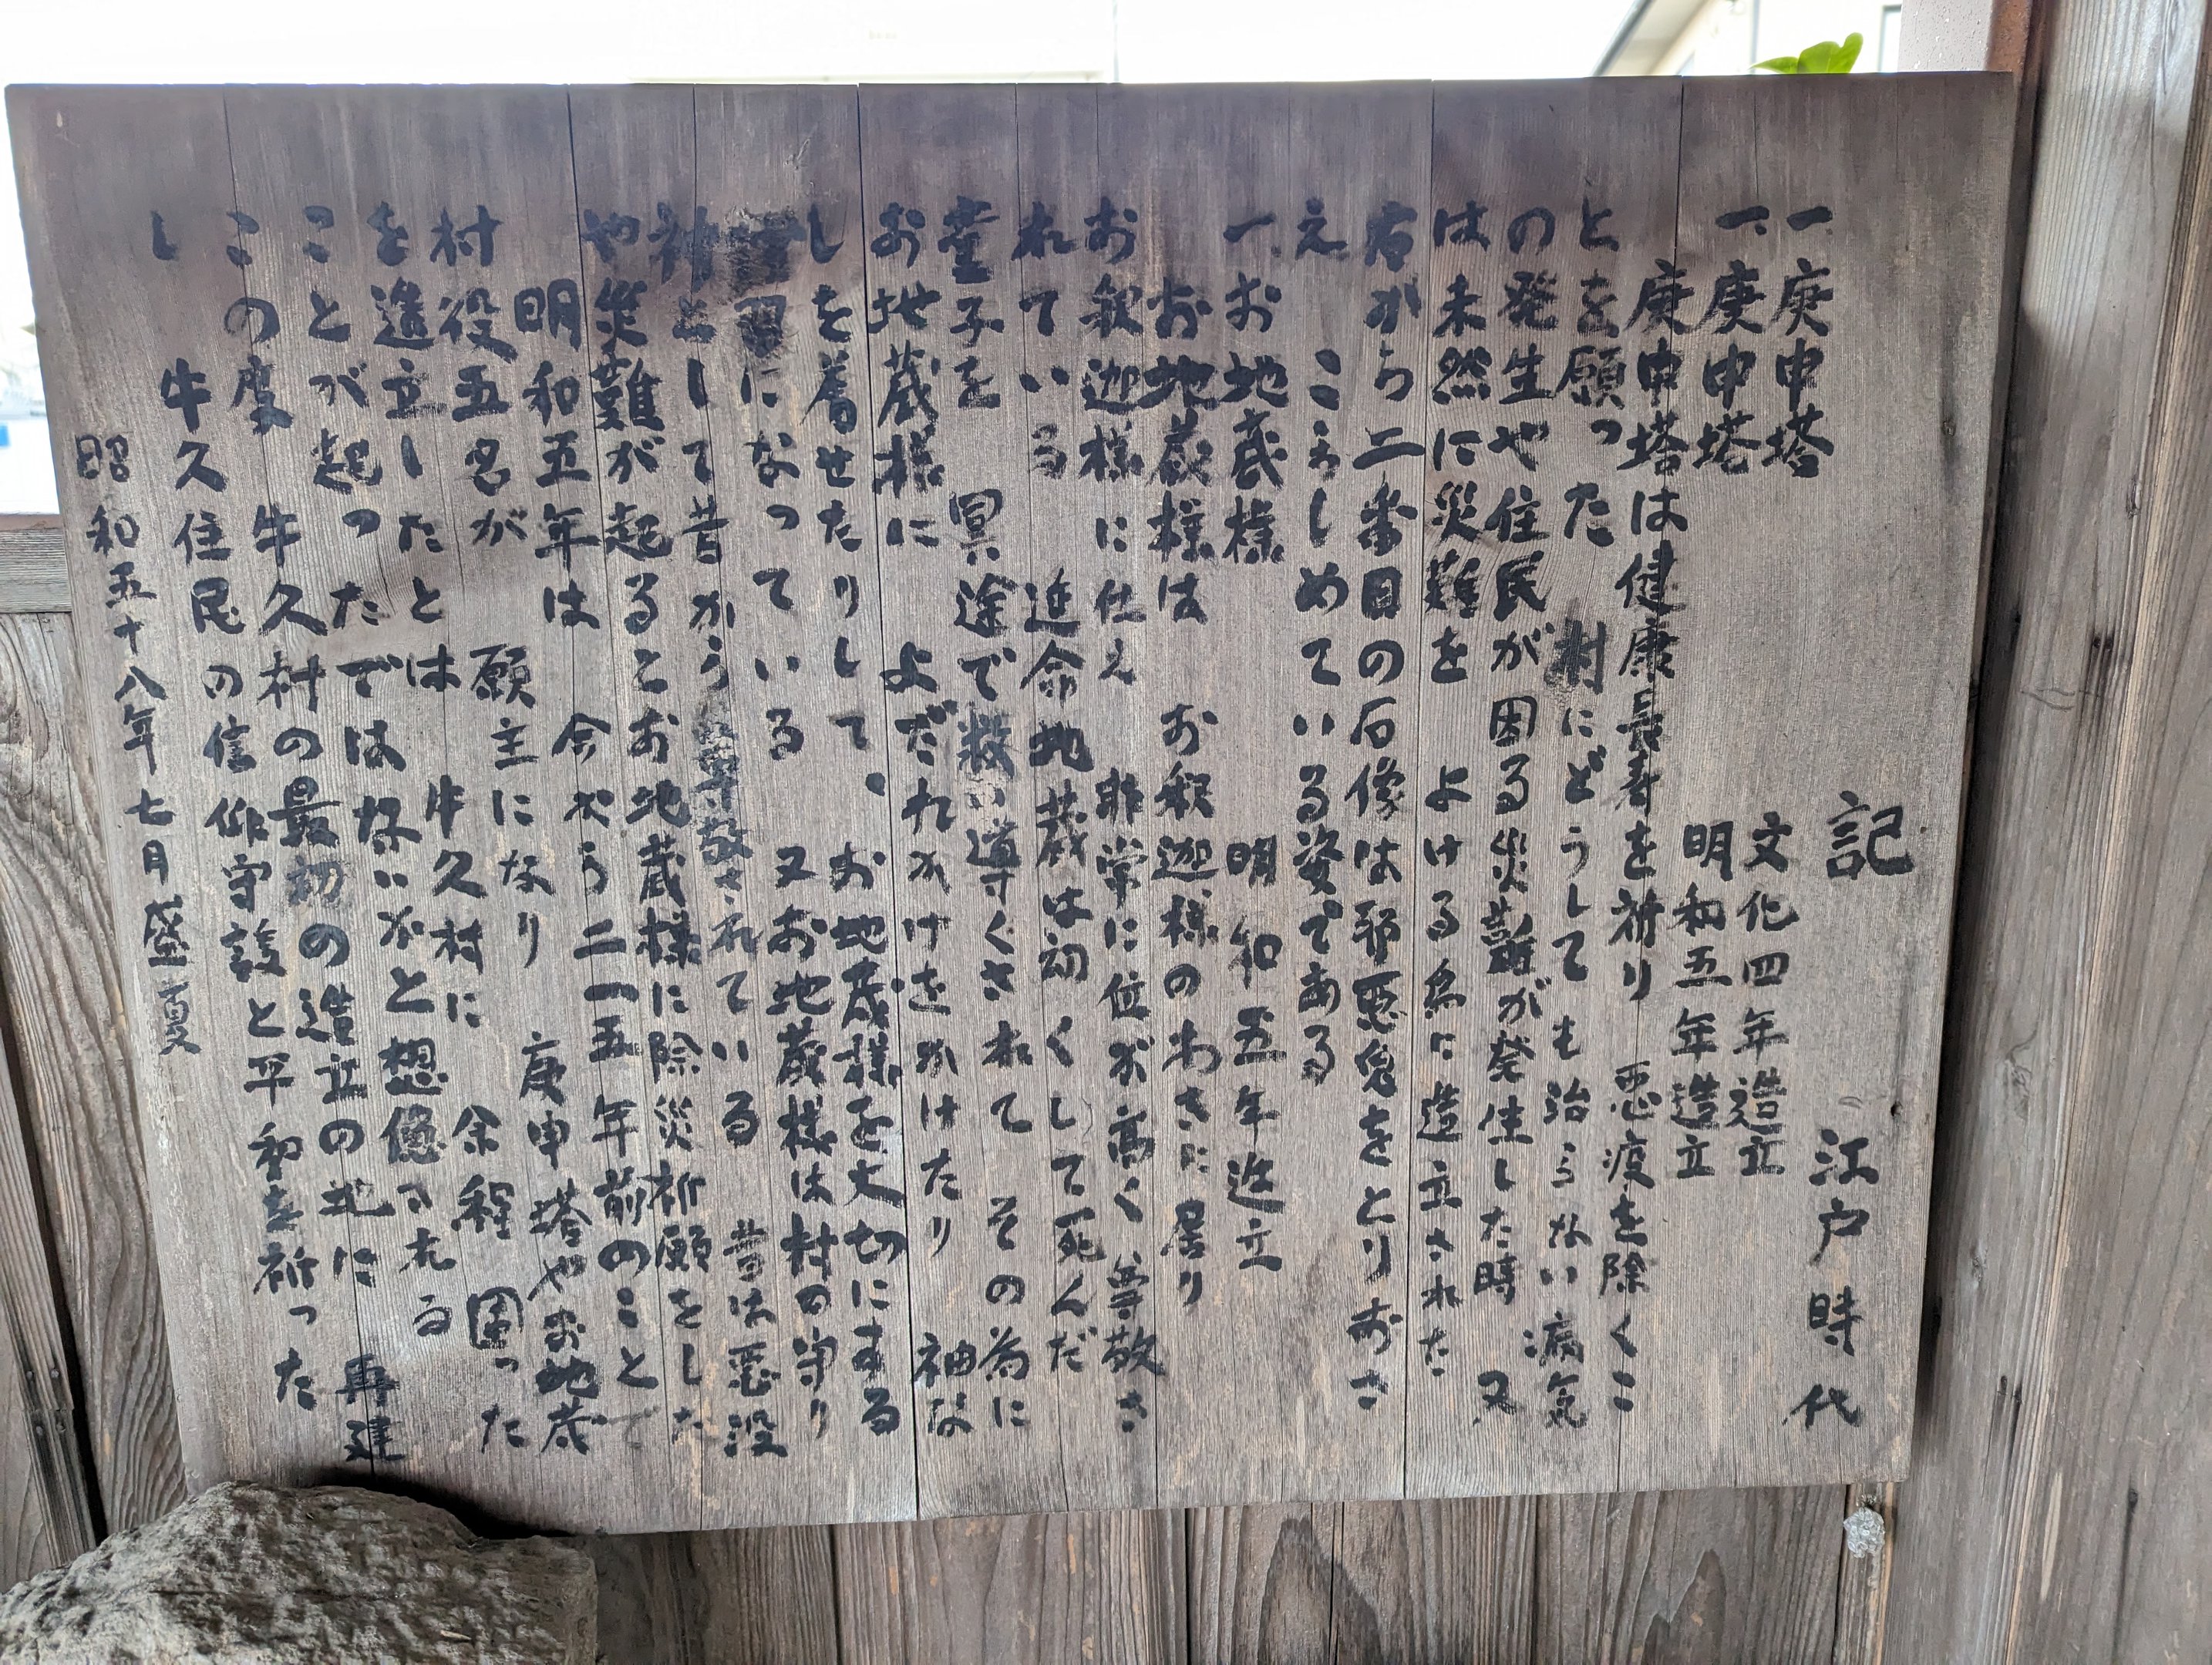 記　江戸時代
一、庚申塔　文化四年造立
一、庚申塔　明和五年造立
庚申塔は健康長寿を祈り　悪疫を除くこ
とを願った　村にどうしても治らない病気
の発生や住民が困る災難が発生した時　又
は未然に災難を　よける為に造立された
右から二番目の石像は邪悪鬼をとりおさ
え　こらしめている姿である
一、お地蔵様　明和五年造立
お地蔵様は　お釈迦様のわきに居り
お釈迦様に仕え　非常に位が高く　尊敬さ
れている　延命地蔵は幼くして死んだ
童子を　冥途で救い導くされて　その為に
お地蔵様に　よだれかけをかけたり　袖な
しを着せたりして、お地蔵様を大切にする
習になっている　又お地蔵様は村の守り
神として昔から尊敬されている　昔は悪疫
や災難が起るとお地蔵様に除災祈願をした
明和五年は　今から二一五年前のことで
村役五名が　願主になり　庚申塔やお地蔵
を造立したとは　牛久村に　余程　困った
ことが起ったではないかと想像される
この度　牛久村の最初の造立の地に　再建
し　牛久住民の信仰守護と平和を祈った
昭和五十八年七月盛夏